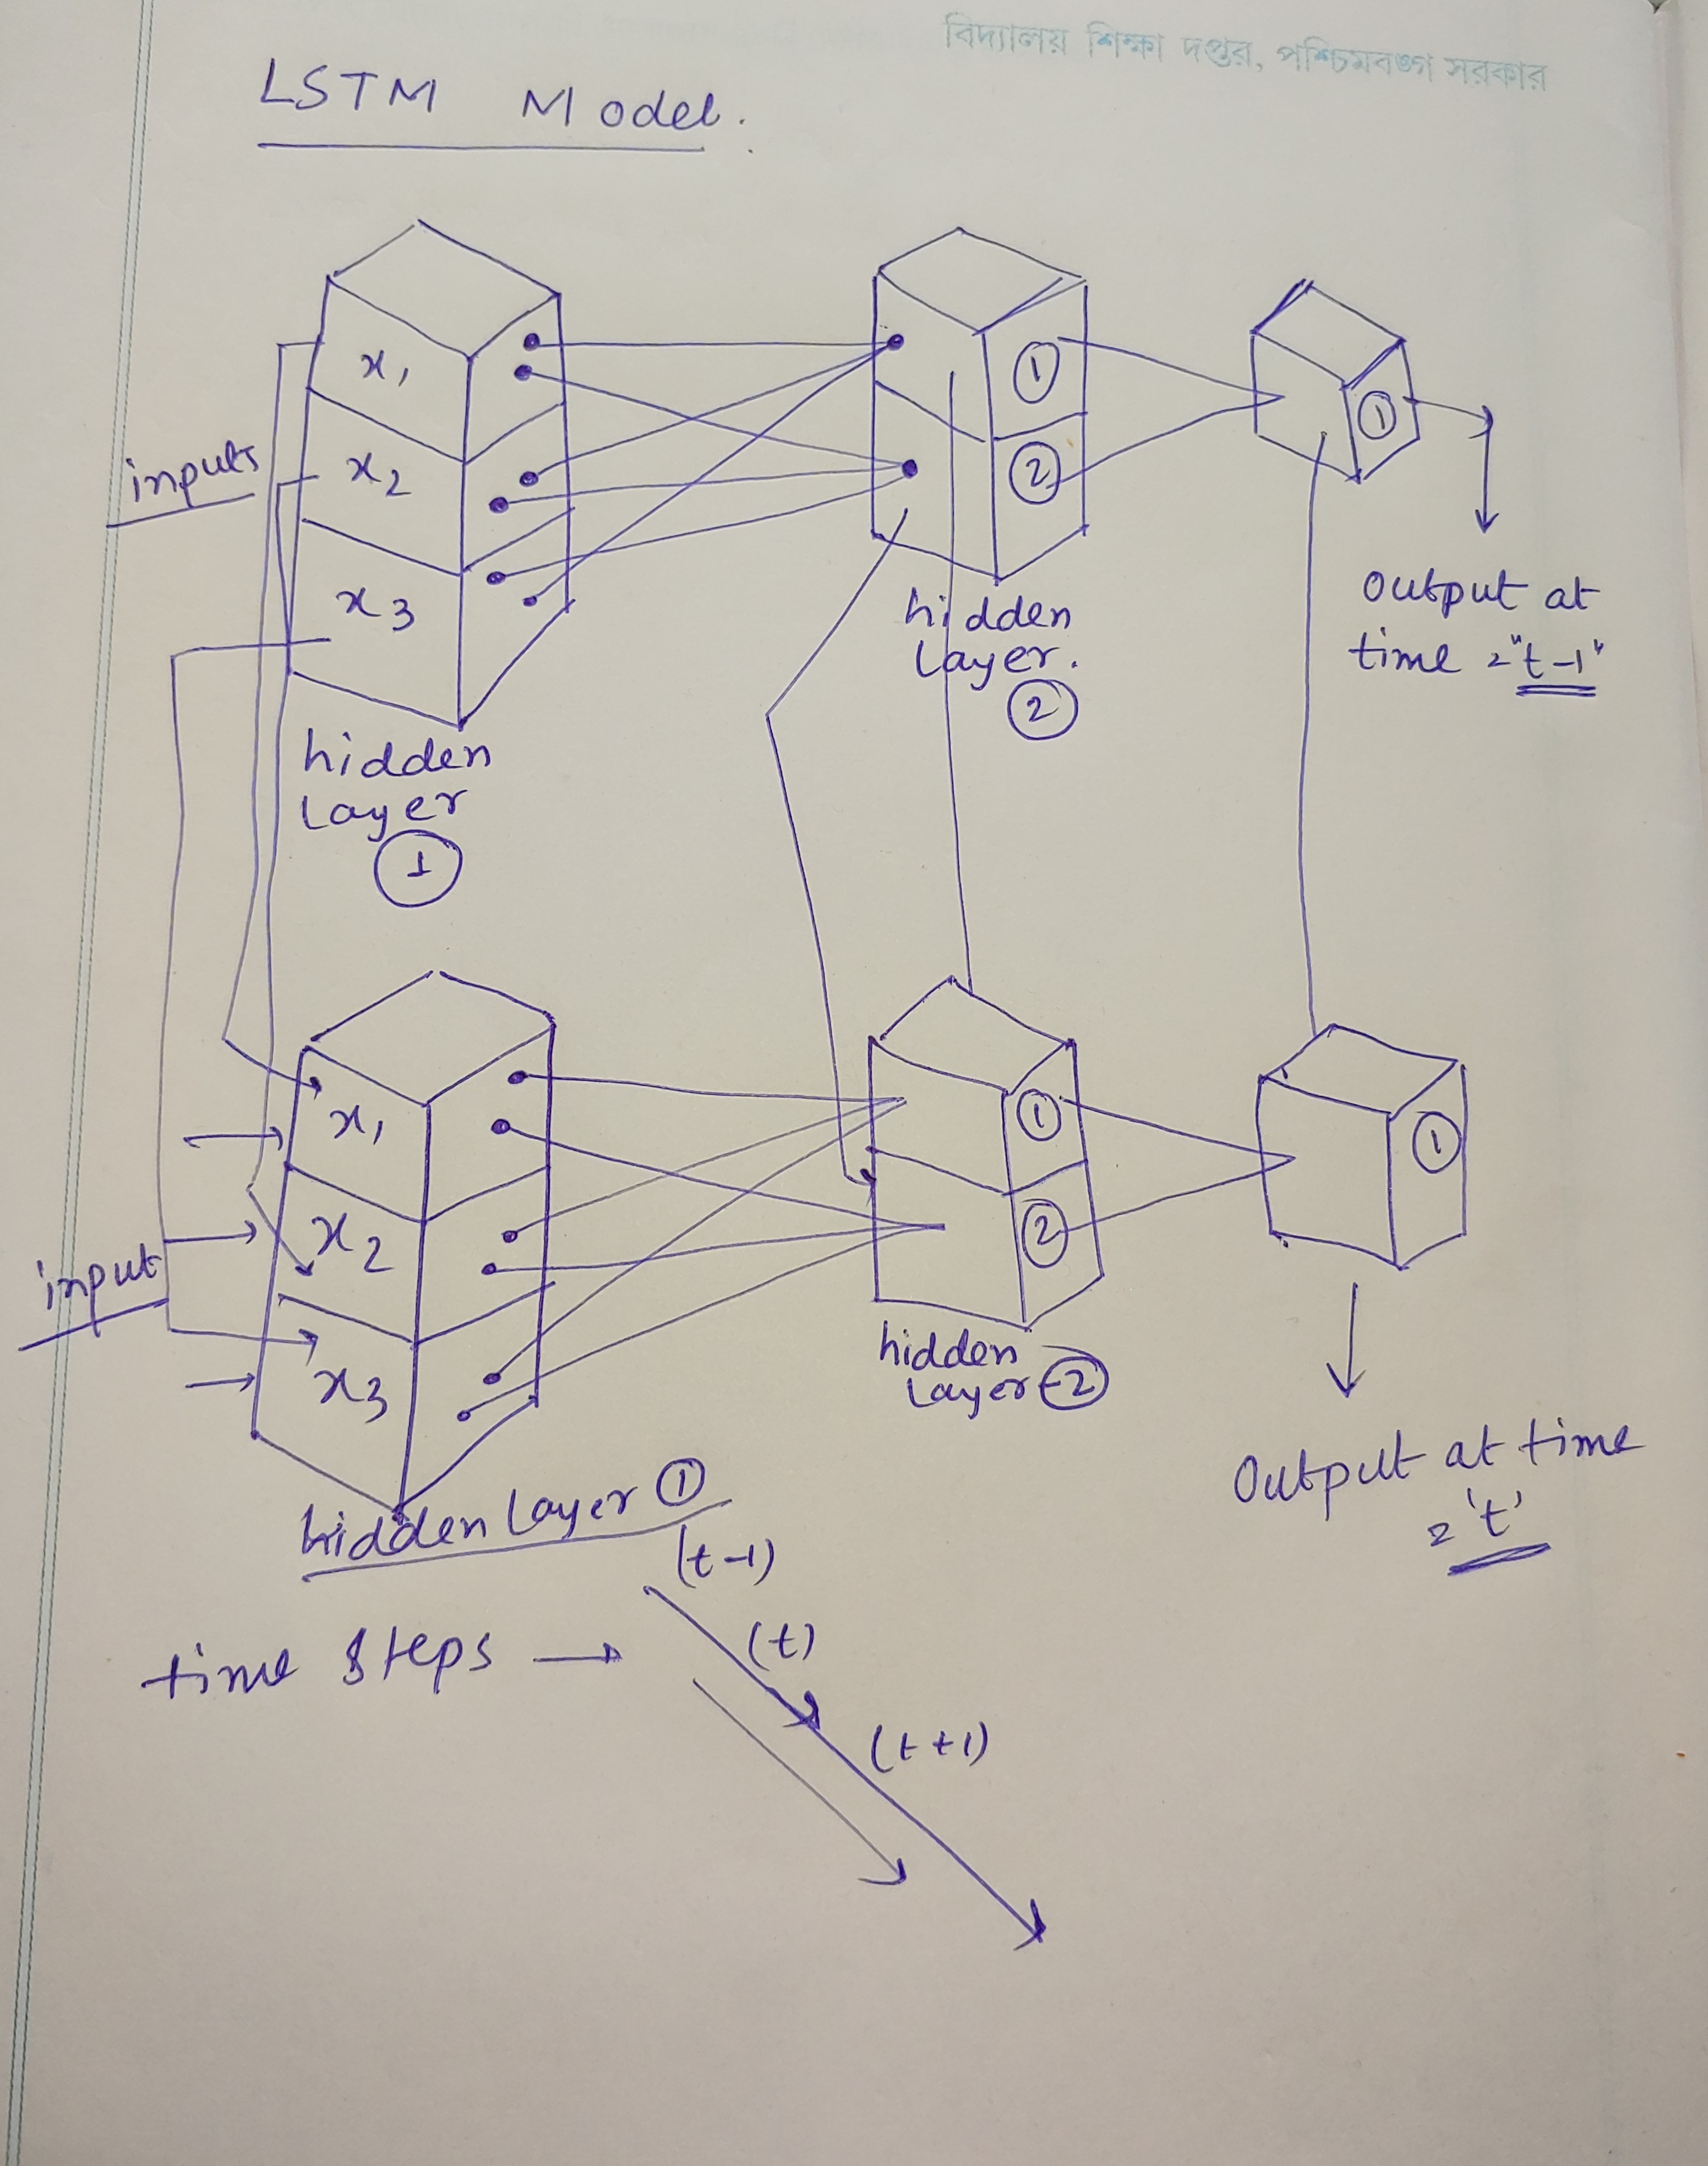 বিদ্যালয় শিক্ষা দপ্তর, পশ্চিমবঙ্গ সরকার
LSTM Model.
x1
x2
x3
inputs
hidden
layer
1
1
2
hidden
layer.
2
1
output at
time = "t-1"
x1
x2
x3
input
hidden layer 1
1
2
hidden
layer-2
1
Output at time
= 't'
time steps →
(t-1)
(t)
(t+1)